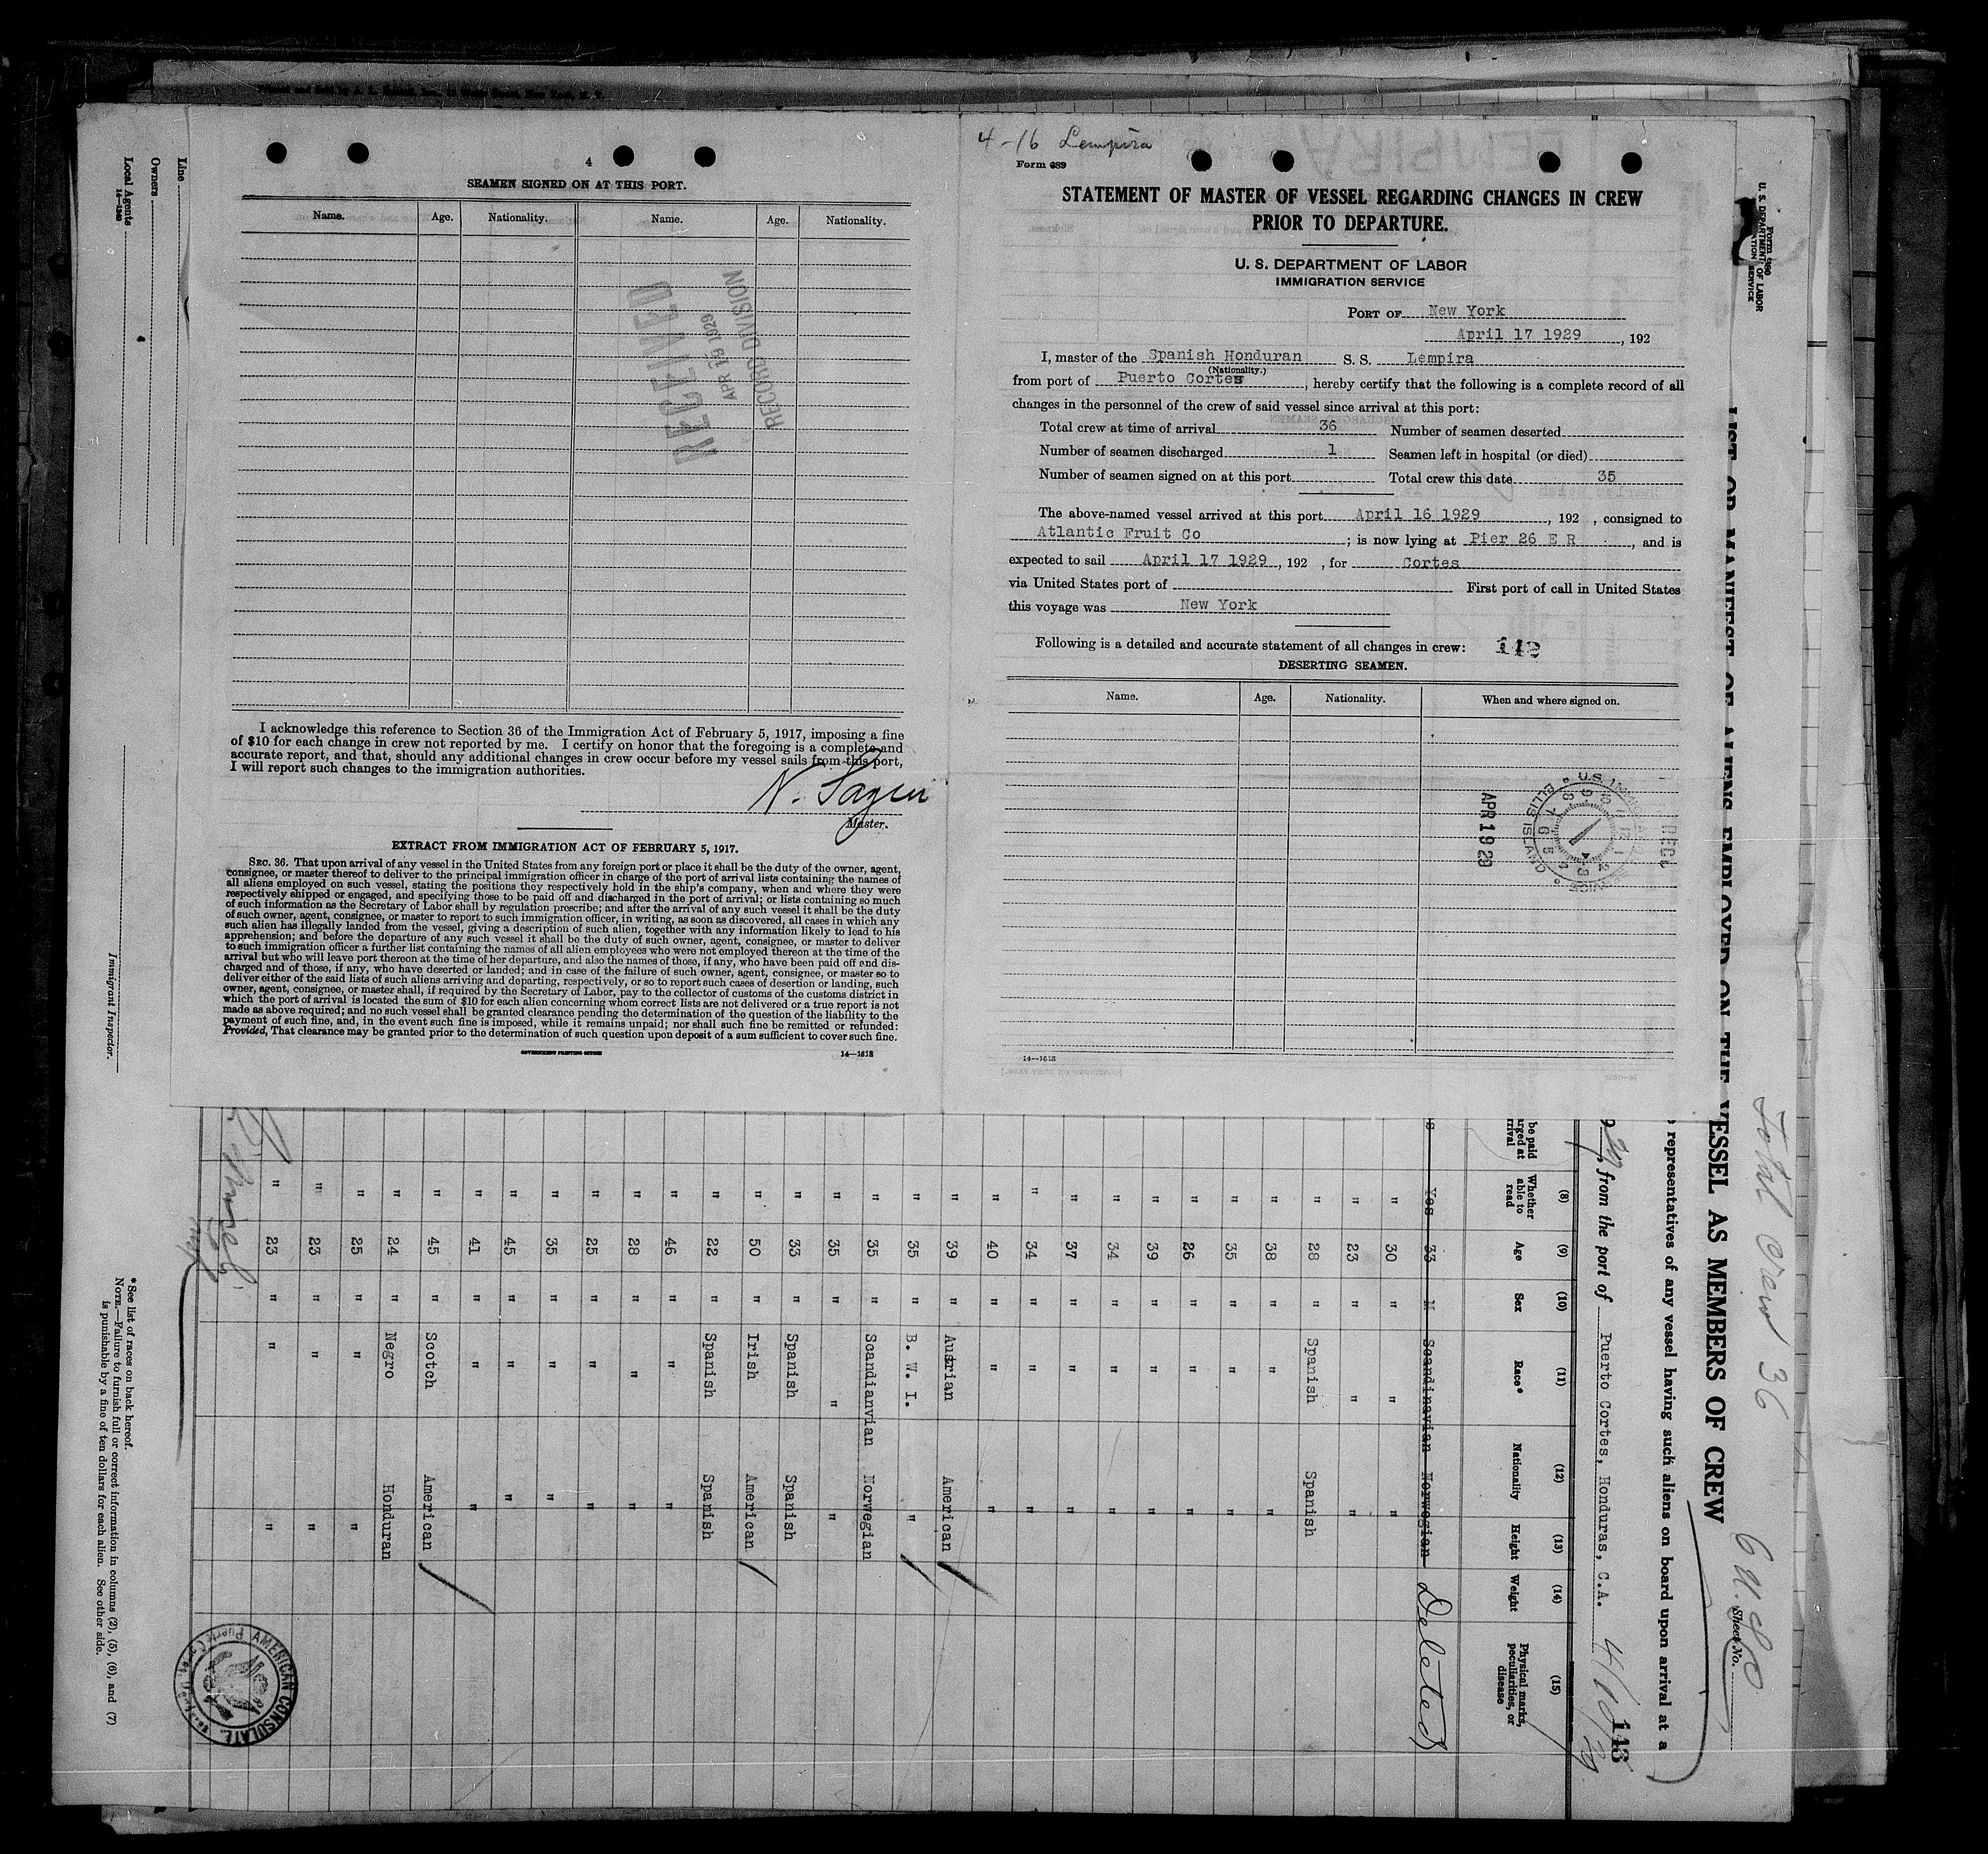 4
SEAMEN SIGNED ON AT THIS PORT.
Name. Age. Nationality. Name. Age. Nationality.
RECEIVED
APR 19 1929
RECORD DIVISION
I acknowledge this reference to Section 36 of the Immigration Act of February 5, 1917, imposing a fine
of $10 for each change in crew not reported by me. I certify on honor that the foregoing is a complete and
accurate report, and that, should any additional changes in crew occur before my vessel sails from this port,
I will report such changes to the immigration authorities.
Master.
EXTRACT FROM IMMIGRATION ACT OF FEBRUARY 5, 1917.
SEC. 36. That upon arrival of any vessel in the United States from any foreign port or place it shall be the duty of the owner, agent,
consignee, or master thereof to deliver to the principal immigration officer in charge of the port of arrival lists containing the names of
all aliens employed on such vessel, stating the positions they respectively hold in the ship's company, when and where they were
respectively shipped or engaged, and specifying those to be paid off and discharged in the port of arrival; or lists containing so much
of such information as the Secretary of Labor shall by regulation prescribe; and after the arrival of any such vessel it shall be the duty
of such owner, agent, consignee, or master to report to such immigration officer, in writing, as soon as discovered, all cases in which any
such alien has illegally landed from the vessel, giving a description of such alien, together with any information likely to lead to his
apprehension; and before the departure of any such vessel it shall be the duty of such owner, agent, consignee, or master to deliver
to such immigration officer a further list containing the names of all alien employees who were not employed thereon at the time of the
arrival but who will leave port thereon at the time of her departure, and also the names of those, if any, who have been paid off and dis-
charged and of those, if any, who have deserted or landed; and in case of the failure of such owner, agent, consignee, or master so to
deliver either of the said lists of such aliens arriving and departing, respectively, or so to report such cases of desertion or landing, such
owner, agent, consignee, or master shall, if required by the Secretary of Labor, pay to the collector of customs of the customs district in
which the port of arrival is located the sum of $10 for each alien concerning whom correct lists are not delivered or a true report is not
made as above required; and no such vessel shall be granted clearance pending the determination of the question of the liability to the
payment of such fine, and, in the event such fine is imposed, while it remains unpaid; nor shall such fine be remitted or refunded:
Provided, That clearance may be granted prior to the determination of such question upon deposit of a sum sufficient to cover such fine.
GOVERNMENT PRINTING OFFICE 14—1613
4-16 Lempira
Form 689
STATEMENT OF MASTER OF VESSEL REGARDING CHANGES IN CREW
PRIOR TO DEPARTURE.
U. S. DEPARTMENT OF LABOR
IMMIGRATION SERVICE
PORT OF New York
April 17 1929, 192
I, master of the Spanish Honduran S. S. Lempira
(Nationality.)
from port of Puerto Cortes, hereby certify that the following is a complete record of all
changes in the personnel of the crew of said vessel since arrival at this port:
Total crew at time of arrival 36 Number of seamen deserted
Number of seamen discharged 1 Seamen left in hospital (or died)
Number of seamen signed on at this port Total crew this date 35
The above-named vessel arrived at this port April 16 1929, 192 , consigned to
Atlantic Fruit Co ; is now lying at Pier 26 E R , and is
expected to sail April 17 1929, 192 , for Cortes
via United States port of First port of call in United States
this voyage was New York
Following is a detailed and accurate statement of all changes in crew: 112
DESERTING SEAMEN.
Name. Age. Nationality. When and where signed on.
APR 19 29
U.S. IMMIGRATION SERVICE
ELLIS ISLAND
14—1613
Line
Owners
Local Agents
14—1240
Immigrant Inspector.
Form 680
U. S. DEPARTMENT OF LABOR
IMMIGRATION SERVICE
LIST OR MANIFEST OF ALIENS EMPLOYED ON THE VESSEL AS MEMBERS OF CREW
Total Crew 36
6 U.S.C
Sheet No.
representatives of any vessel having such aliens on board upon arrival at a
29, from the port of Puerto Cortes, Honduras, C.A. 4/16/29
113
be paid
arged at
rrival
(8) Whether able to read
(9) Age
(10) Sex
(11) Race*
(12) Nationality
(13) Height
(14) Weight
(15) Physical marks, peculiarities, or disease
Yes 33 M Scandinavian Norwegian Deleted
" 30 " " "
" 23 " " "
" 28 " Spanish Spanish
" 38 " " "
" 35 " " "
" 26 " " "
" 39 " " "
" 34 " " "
" 37 " " "
" 34 " " "
" 40 " " "
" 39 " Austrian American
" 35 " B. W. I. "
" 35 " Scandianvian Norwegian
" 35 " " "
" 33 " Spanish Spanish
" 50 " Irish American
" 22 " Spanish Spanish
" 46 " " "
" 28 " " "
" 25 " " "
" 35 " " "
" 45 " " "
" 41 " " "
" 45 " Scotch American
" 24 " Negro Honduran
" 25 " " "
" 23 " " "
" 23 " " "
AMERICAN CONSULATE
* See list of races on back hereof.
NOTE.—Failure to furnish full or correct information in columns (2), (5), (6), and (7)
is punishable by a fine of ten dollars for each alien. See other side.